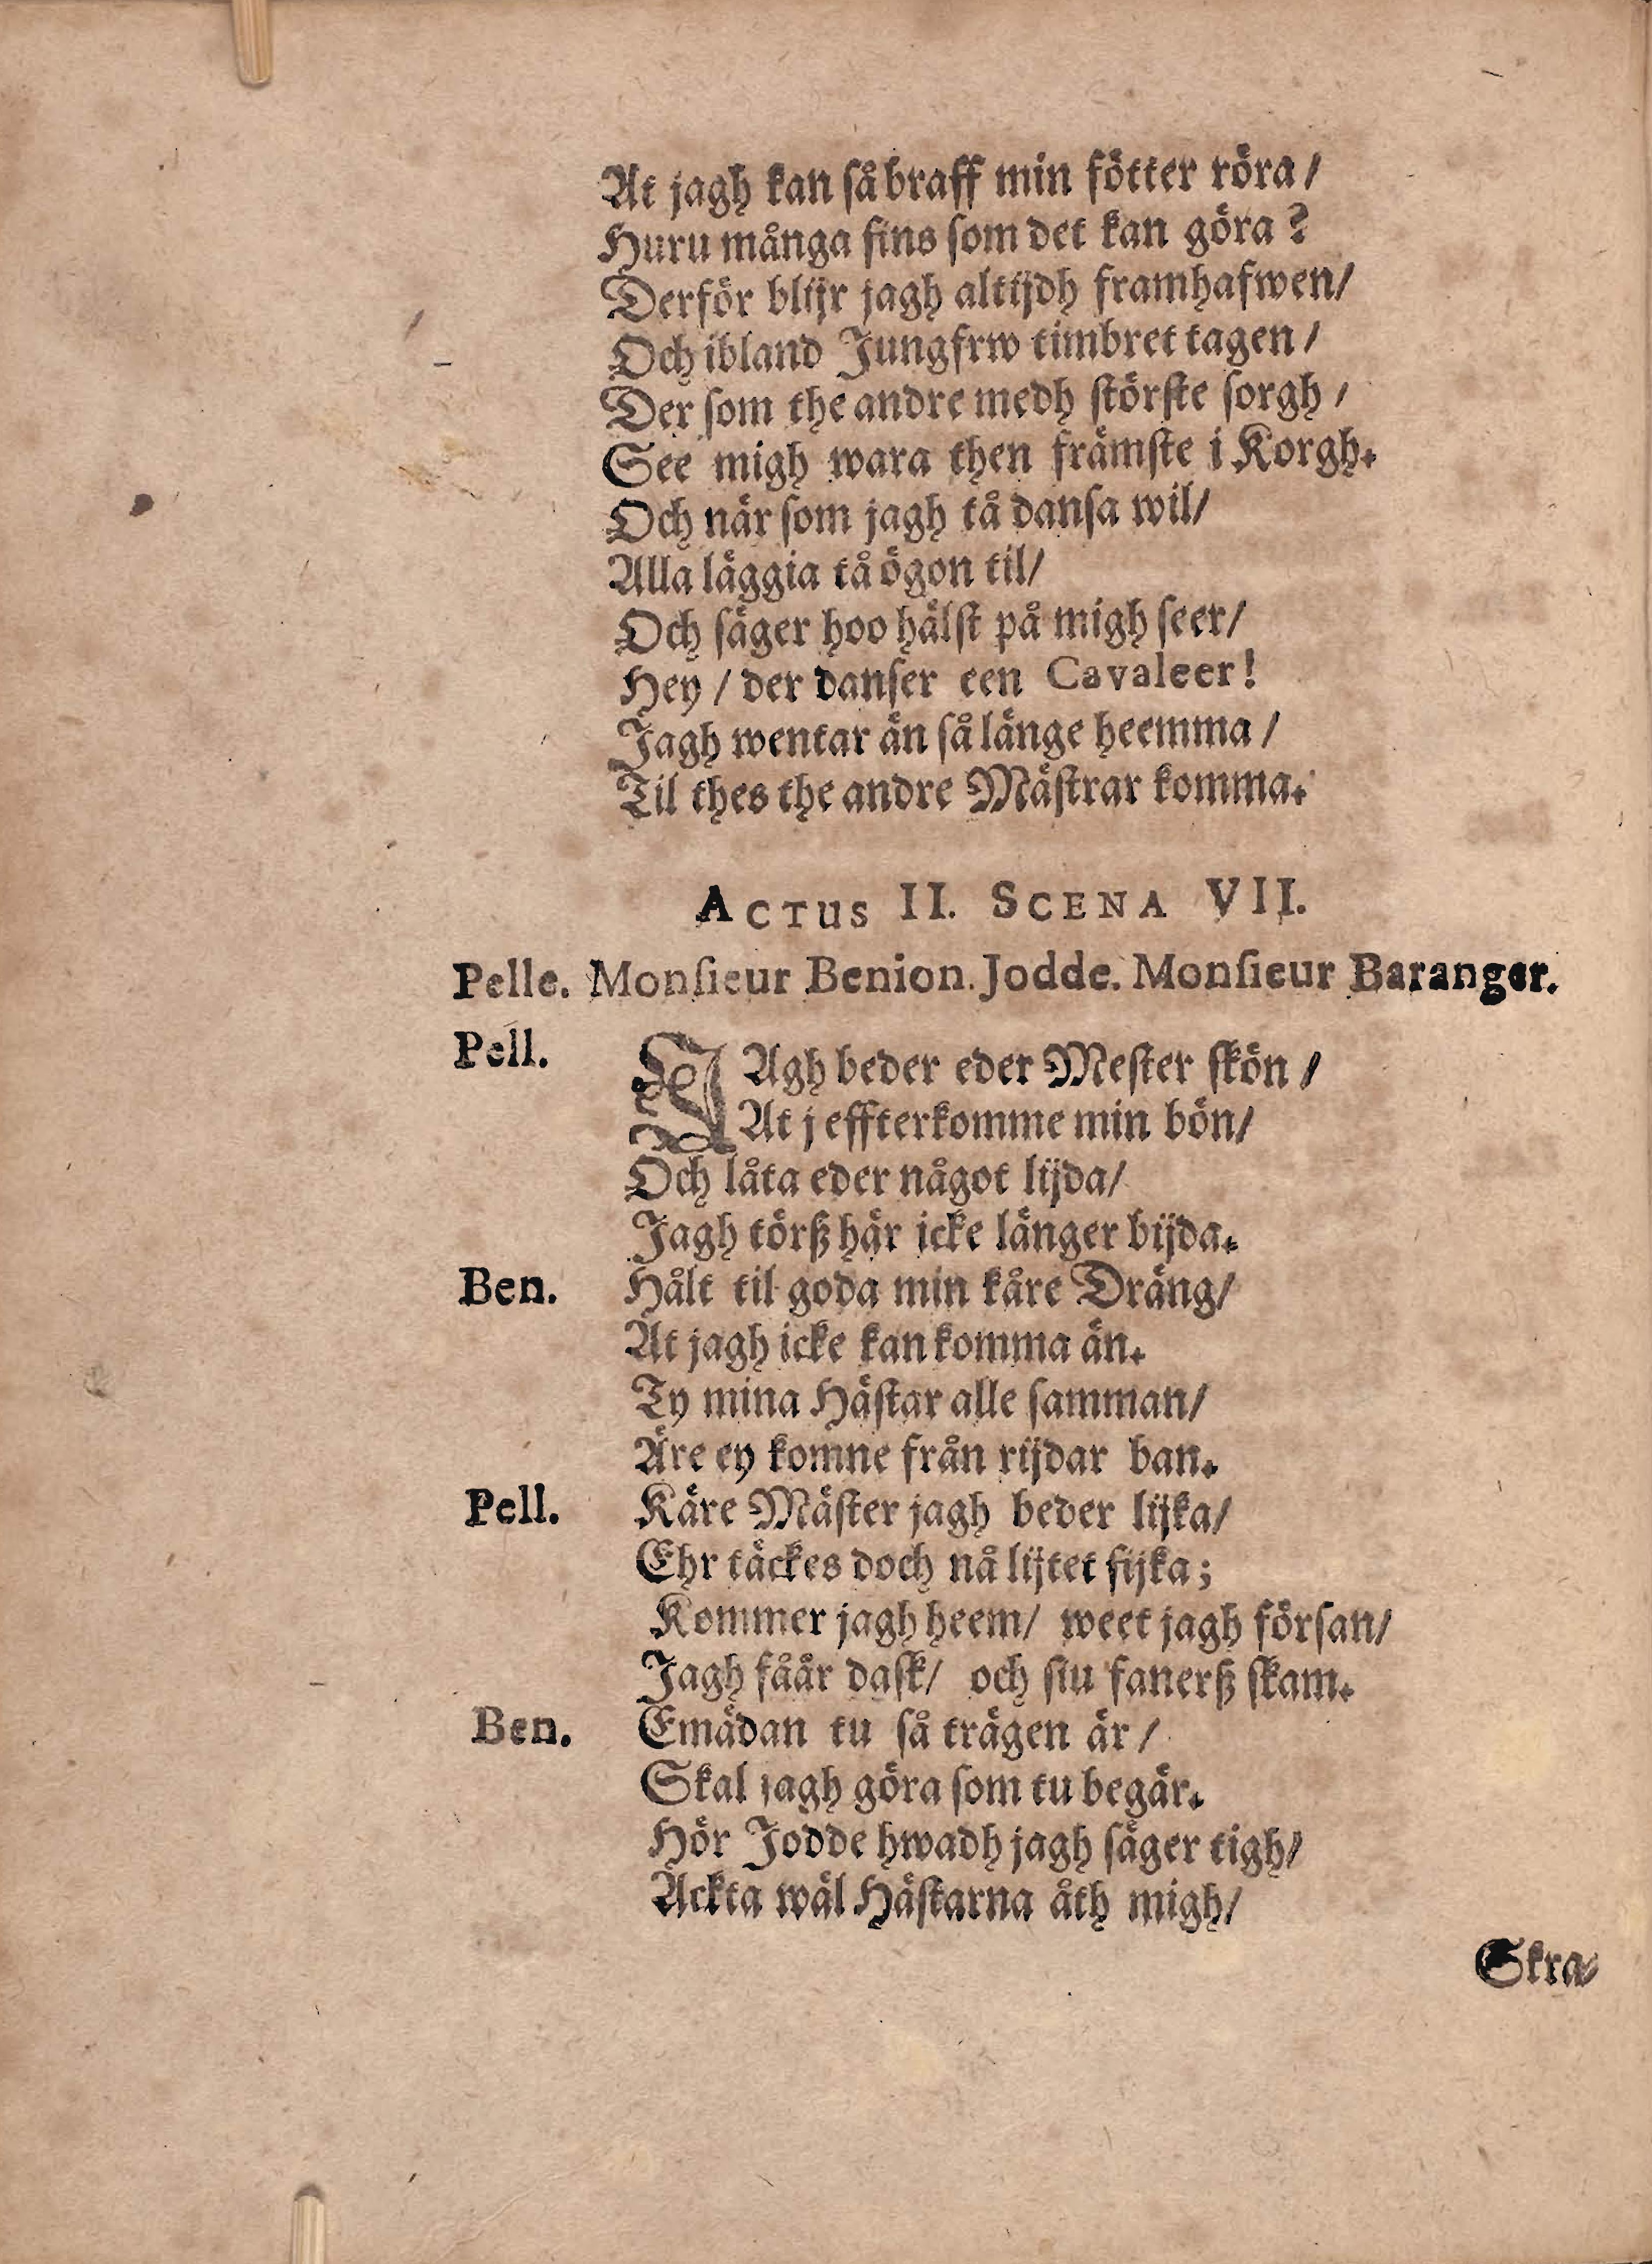 At jagh kan så braff min fötter röra /
Huru många fins som det kan göra?
Derför blijr jagh altijdh framhafwen/
Och ibland Jungfrw timbret tagen /
Der som the andre medh störste sorgh /
See migh wara then främste i Korgh.
Och när som jagh tå dansa wil/
Alla läggia tå ögon til/
Och säger hoo hälst på migh seer/
Hey / der danser een Cavaleer!
Jagh wentar än så länge heemma /
Til thes the andre Mästrar komma.
ACTUS II. SCENA VII.
Pelle. Monsieur Benion. Jodde. Monsieur Baranger.
Pell. JAgh beder eder Mester skön /
At j effterkomme min bön/
Och låta eder något lijda/
Jagh törß här icke länger bijda.
Ben. Hålt til goda min kåre Dräng/
At jagh icke kan komma än.
Ty mina Hästar alle samman/
Äre ey komne från rijdar ban.
Pell. Käre Mäster jagh beder lijka/
Ehr täckes doch nå lijtet sijka;
Kommer jagh heem/ weet jagh försan/
Jagh fåår dask/ och siu fanerß skam.
Ben. Emädan tu så trägen är /
Skal jagh göra som tu begär.
Hör Jodde hwadh jagh säger tigh/
Ackta wäl Hästarna åth migh/
Skra-